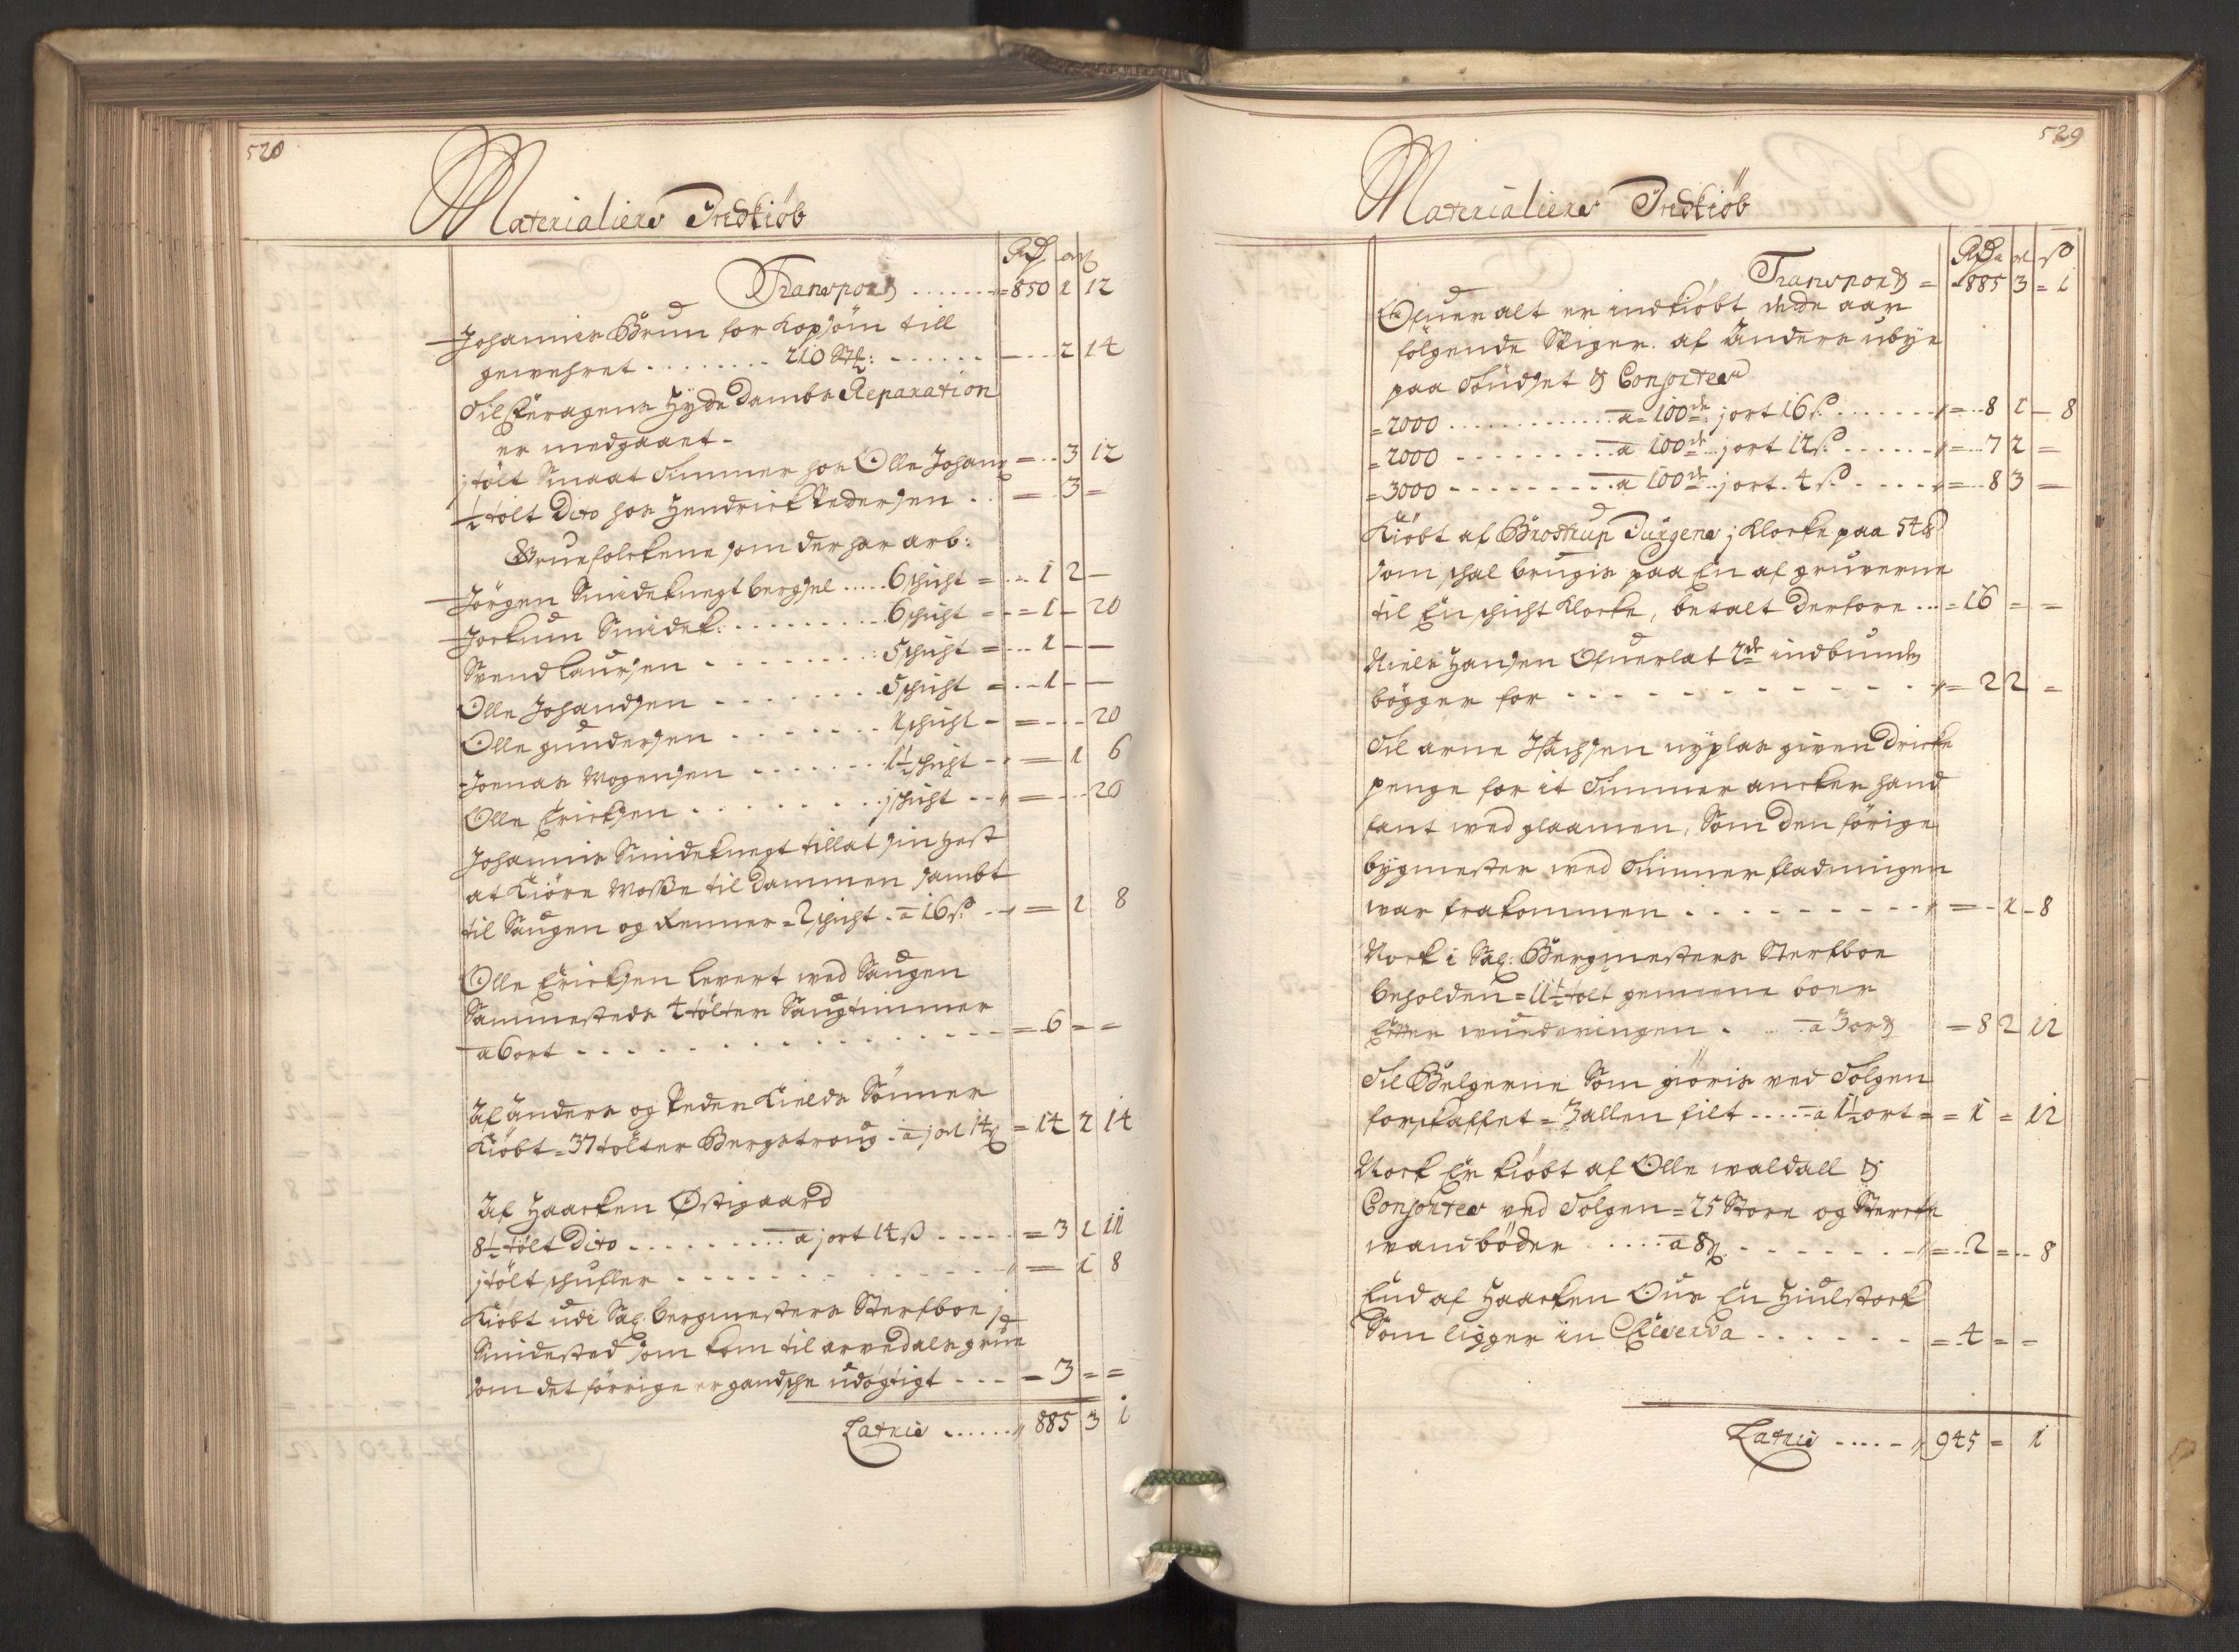 528
Materialiers Indkiöb
Rdr ort ß
Transport ...... = 850 1 12
Johannis Brun for Kopsöm till
gewehret ....... 210 Stk: ...... — .. 2 14
Til Kieragens Hyde Dambs Reparation
er medgaaet -
j tölt Smaat Timmer hos Olle Johans = .. 3 12
½ tölt Dito hos Hendrich Pedersen .. = .. 3 –
Gruefolckene som der har arb:
Jörgen Smideknegt bergsel ..... 6 schicht = ... 1 2 –
Jockum Smidek: ......... 6 schicht = .. 1 – 20
Svend Laursen ........ 5 schicht = ... 1 – –
Olle Johandsen ....... 5 schicht = ... 1 – –
Olle gundersen ....... 1 schicht – = ... – 20
Joenas Mogensen ....... 1½ schicht .. = 1 6
Olle Ericksen ........ j schicht .. = ... 20
Johannis Smideknegt tillat sin Hest
at Kiöre Moße til Dammen sambt
til Saugen og Renner = 2 schicht .. a 16 ß .. = 1 8
Olle Ericksen levert wed Saugen
Sammesteds 4 tölter Saugtimmer
a 6 ort ............. = 6 = =
Af Anders og Peder Kields Sönner
Kiöbt = 37 tölter Bergstroug .. a j ort 14 ß = 14 2 14
Af Haacken Østigaard
8½ tölt Dito ......... a j ort 14 ß ..... = 3 1 11
j tölt schufler ............ = 1 8
Kiöbt udi Sal: bergmesters Sterfboe j
Smidested som kom til arvedals grue
som det förrige er gandsche udögtigt ... = 3 = =
Latris ...... 885 3 1
529
Materialiers Indkiöb
Rdr ort ß
Transport = 885 3 = 1
Ofuer alt er indkiöbt dette aar
fölgende Stiger. af Anders ubye
paa Studset & Consorter
= 2000 ............. a 100de j ort 16 ß ....... = .. 8 1 – 8
= 2000 ......... a 100de j ort 12 ß ...... = ... 7 2 =
= 3000 ......... a 100de j ort. 4 ß ..... = ... 8 3 =
Kiöbt af Brostrup Jurgens j Klocke paa 54 ℔
som schal brugis paa En af gruverne
til En schicht Klocke, betalt derfore ... = 16 = =
Niels Hansen Ofuerlat 2de indbunden
bögger for ............. = 2 2 =
Til arne Isachsen nyplas given Dricke
penge for it Timmer ancker hand
fant wed glaamen, Som den förige
bygmester wed Timmer fladningen
war frakommen ......... = – 1 – 8
Nock i Sal: Bergmesters Sterfboe
beholden = 11½ tolt gemene boer
Efter wurderingen . .. a 3 ort = 8 2 12
Til Belgerne Som giöris ved Tolgen
forskaffet = 3 allen filt ..... a 1½ ort = = 1 = 12
Nock Er kiöbt af Olle waldall &
Consorter ved Tolgen = 25 Store og Stercke
wandbötter .... a 8 ß ....... = .. 2 = .. 8
End af Haacken Ous En Hiulstock
Som ligger in ....... = 4 = =
Latris ..... 945 = 1